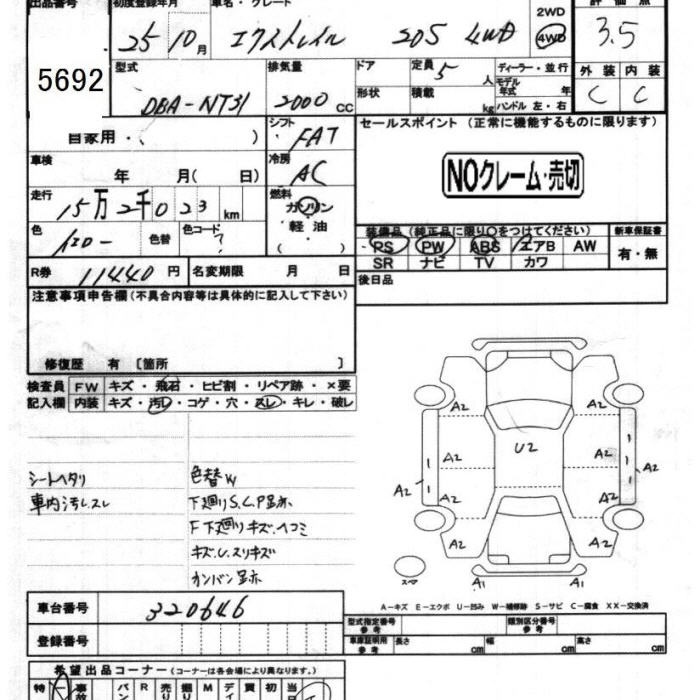 出品番号 初度登録年月 車名・グレード 評価点
5692 25 10月 エクストレイル 20S 4WD 2WD 4WD 3.5
型式 排気量 ドア 定員 5 人 ディーラー・並行 外装 内装
DBA-NT31 2000 CC 形状 積載 kg モデル年式 年 ハンドル 左・右 C C
自家用・( ) シフト FAT セールスポイント (正常に機能するものに限ります)
車検 年 月( 日) 冷房 AC
NOクレーム・売切
走行 15万2千023 km 燃料 ガソリン・軽油 ( )
色 イエロー 色替 色コード ?
装備品 (純正品に限り○をつけてください) 新車保証書
PS PW ABS エアB AW 有・無
SR ナビ TV カワ
R券 11440 円 名変期限 月 日 後日品
注意事項申告欄(不具合内容等は具体的に記入して下さい)
修復歴 有 〔箇所 〕
検査員 FW キズ・飛石・ヒビ割・リペア跡・×要
記入欄 内装 キズ・汚レ・コゲ・穴・スレ・キレ・破レ
シートヘタリ 色替W
車内汚レ.スレ 下廻りS.C.P跡赤
F下廻りキズ.ヘコミ
キズ.U.スリキズ
カンバン跡赤
A2 A2
U2
A2 A2
A2 A2
A2 A2
A2 A2
スペア A1 A1
A-キズ E-エクボ U-凹み W-補修跡 S-サビ C-腐食 XX-交換済
車台番号 320646
登録番号
型式指定番号 参考 類別区分番号 参考
車庫証明用 参考 長さ cm 幅 cm 高さ cm
希望出品コーナー (コーナーは各会場により異なります。)
特 一 事故 バン R 売り 掘り M ディ 買 初 当日